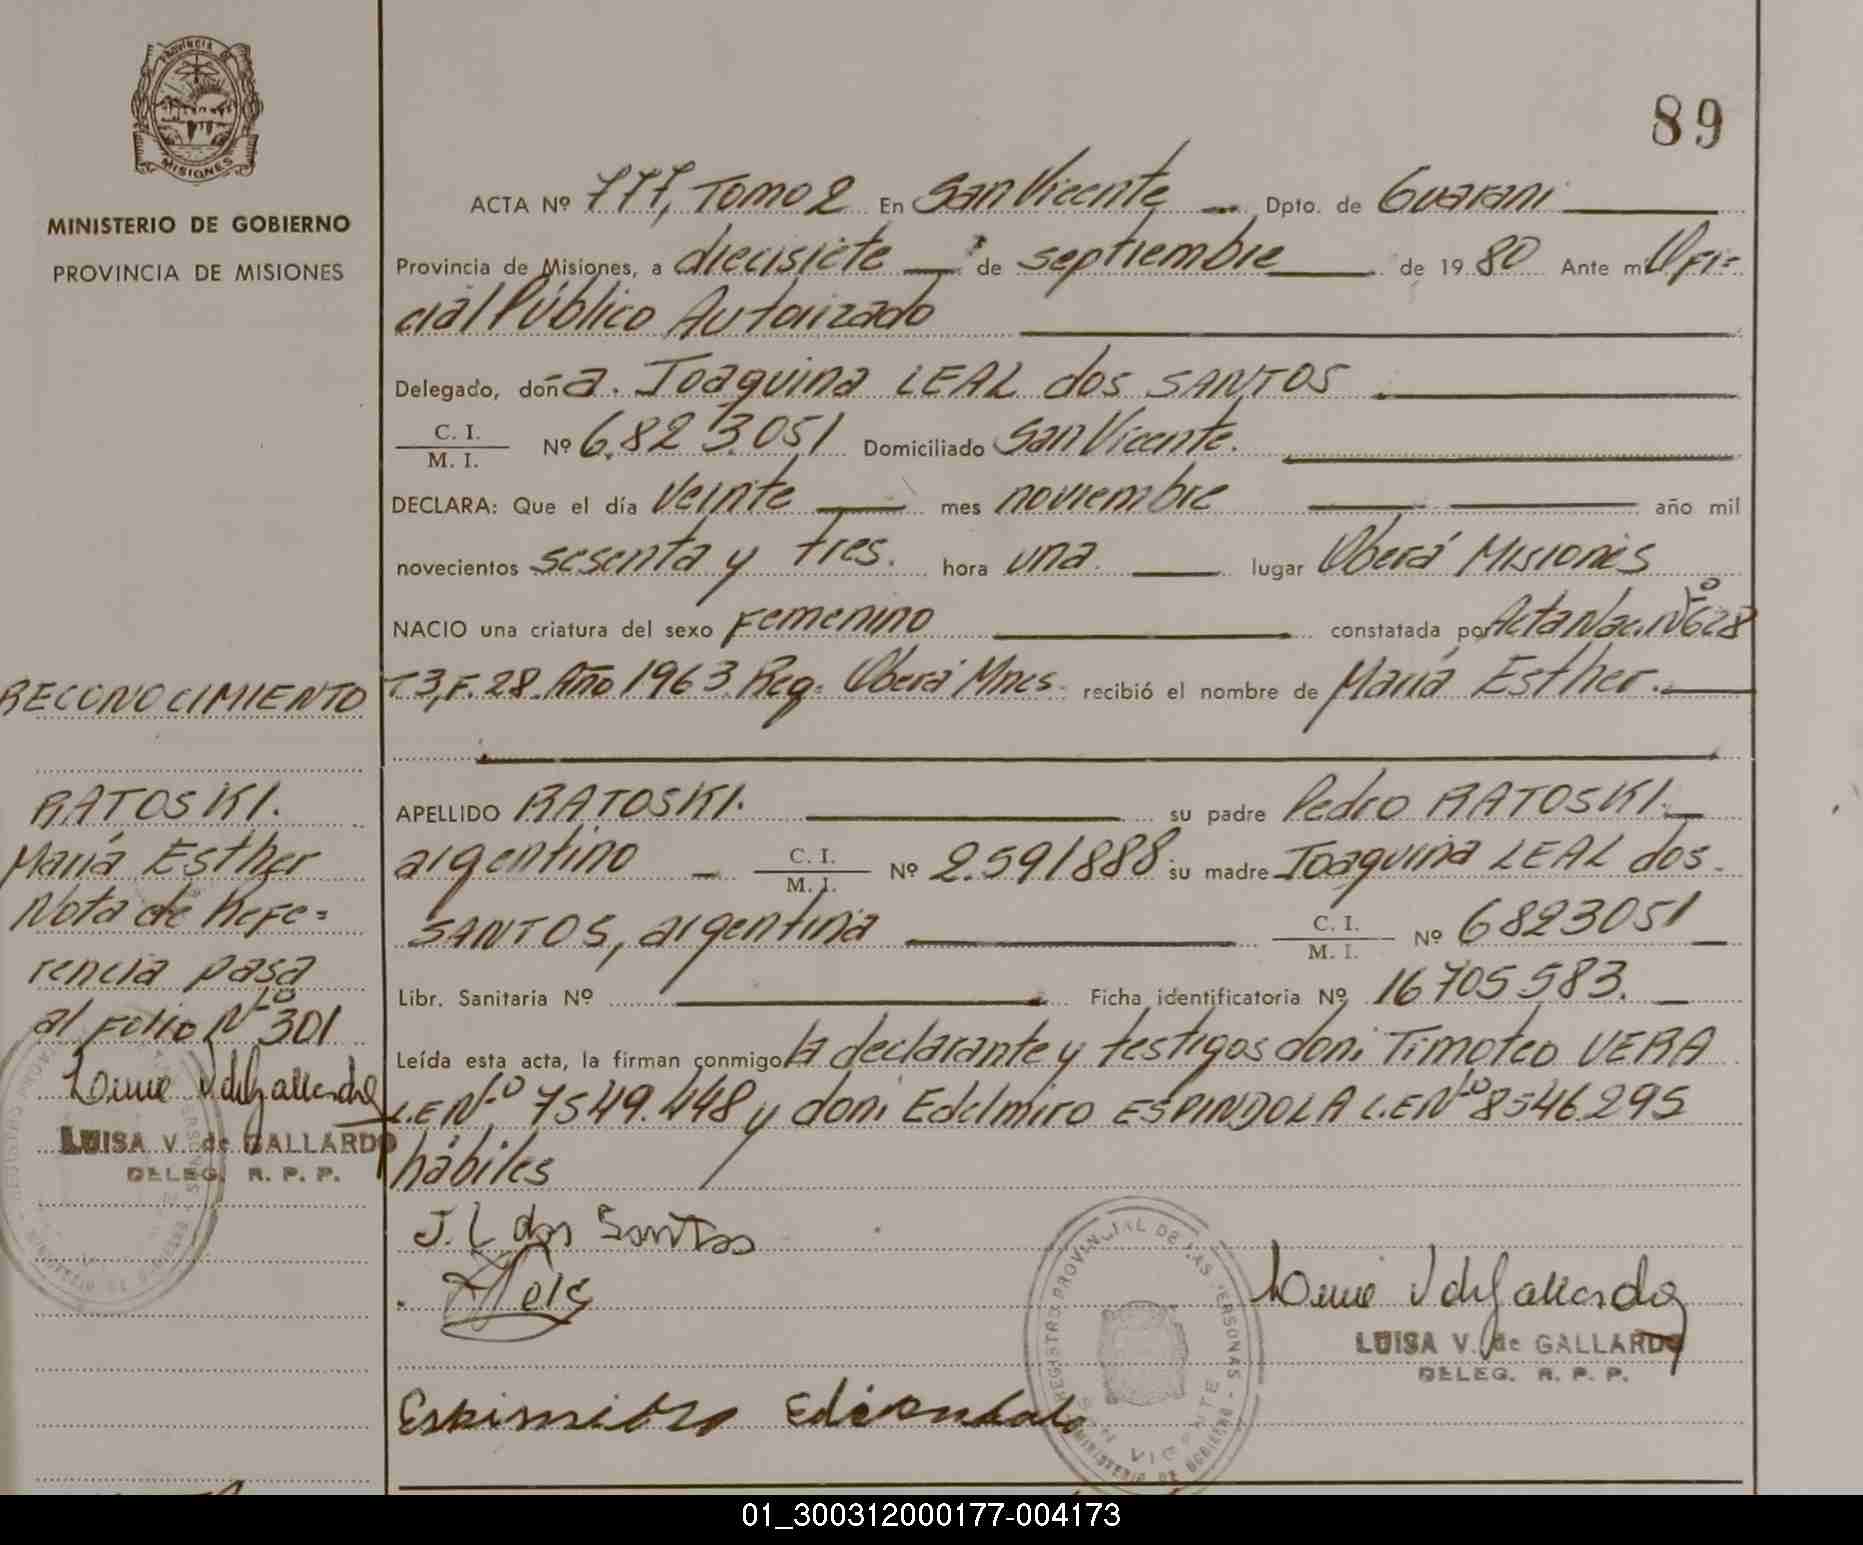 PROVINCIA DE
MISIONES
MINISTERIO DE GOBIERNO
PROVINCIA DE MISIONES
89
ACTA Nº 777, Tomo 2 En San Vicente Dpto. de Guarani
Provincia de Misiones, a diecisiete de septiembre de 1980 Ante mi Ofi=
cial Público Autorizado
Delegado, doña. Joaquina LEAL dos SANTOS
C. I.
M. I.
Nº 6.823.051 Domiciliado San Vicente.
DECLARA: Que el día Veinte mes noviembre año mil
novecientos sesenta y tres. hora una. lugar Oberá Misiones
NACIO una criatura del sexo Femenino constatada por Acta Nac. Nº 628
T3, F. 28 Año 1963 Reg. Oberá Mnes. recibió el nombre de María Esther.
RECONOCIMIENTO
RATOSKI.
María Esther
Nota de Refe=
rencia pasa
al Folio Nº 301
LUISA V. de GALLARDO
DELEG. R. P. P.
APELLIDO RATOSKI. su padre Pedro RATOSKI.
argentino C. I.
M. I. Nº 2.591888 su madre Joaquina LEAL dos
SANTOS, argentina C. I.
M. I. Nº 6823051
Libr. Sanitaria Nº Ficha identificatoria Nº 16705583.
Leída esta acta, la firman conmigo la declarante y testigos don: Timoteo VERA
L.E Nº 7549.448 y don: Edelmiro ESPINDOLA L.E Nº 8546.295
hábiles
J. L dos Santos
REGISTRO PROVINCIAL DE LAS PERSONAS
MINISTERIO DE GOBIERNO
LUISA V. de GALLARDO
DELEG. R. P. P.
01_300312000177-004173